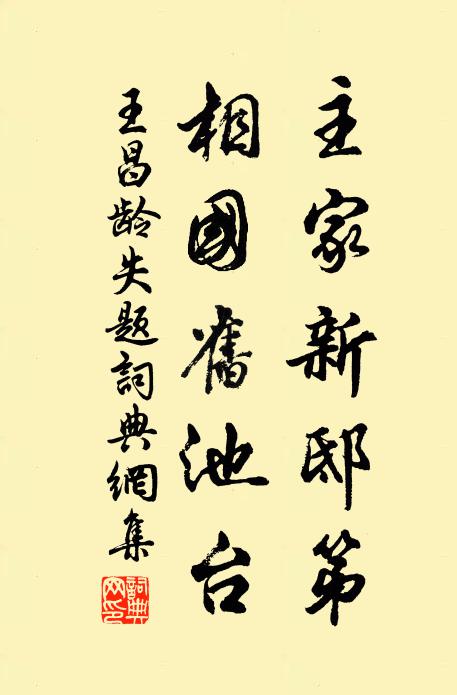 主家新邸第
相國舊池台
王昌龄失题詞典網集
詞典网印